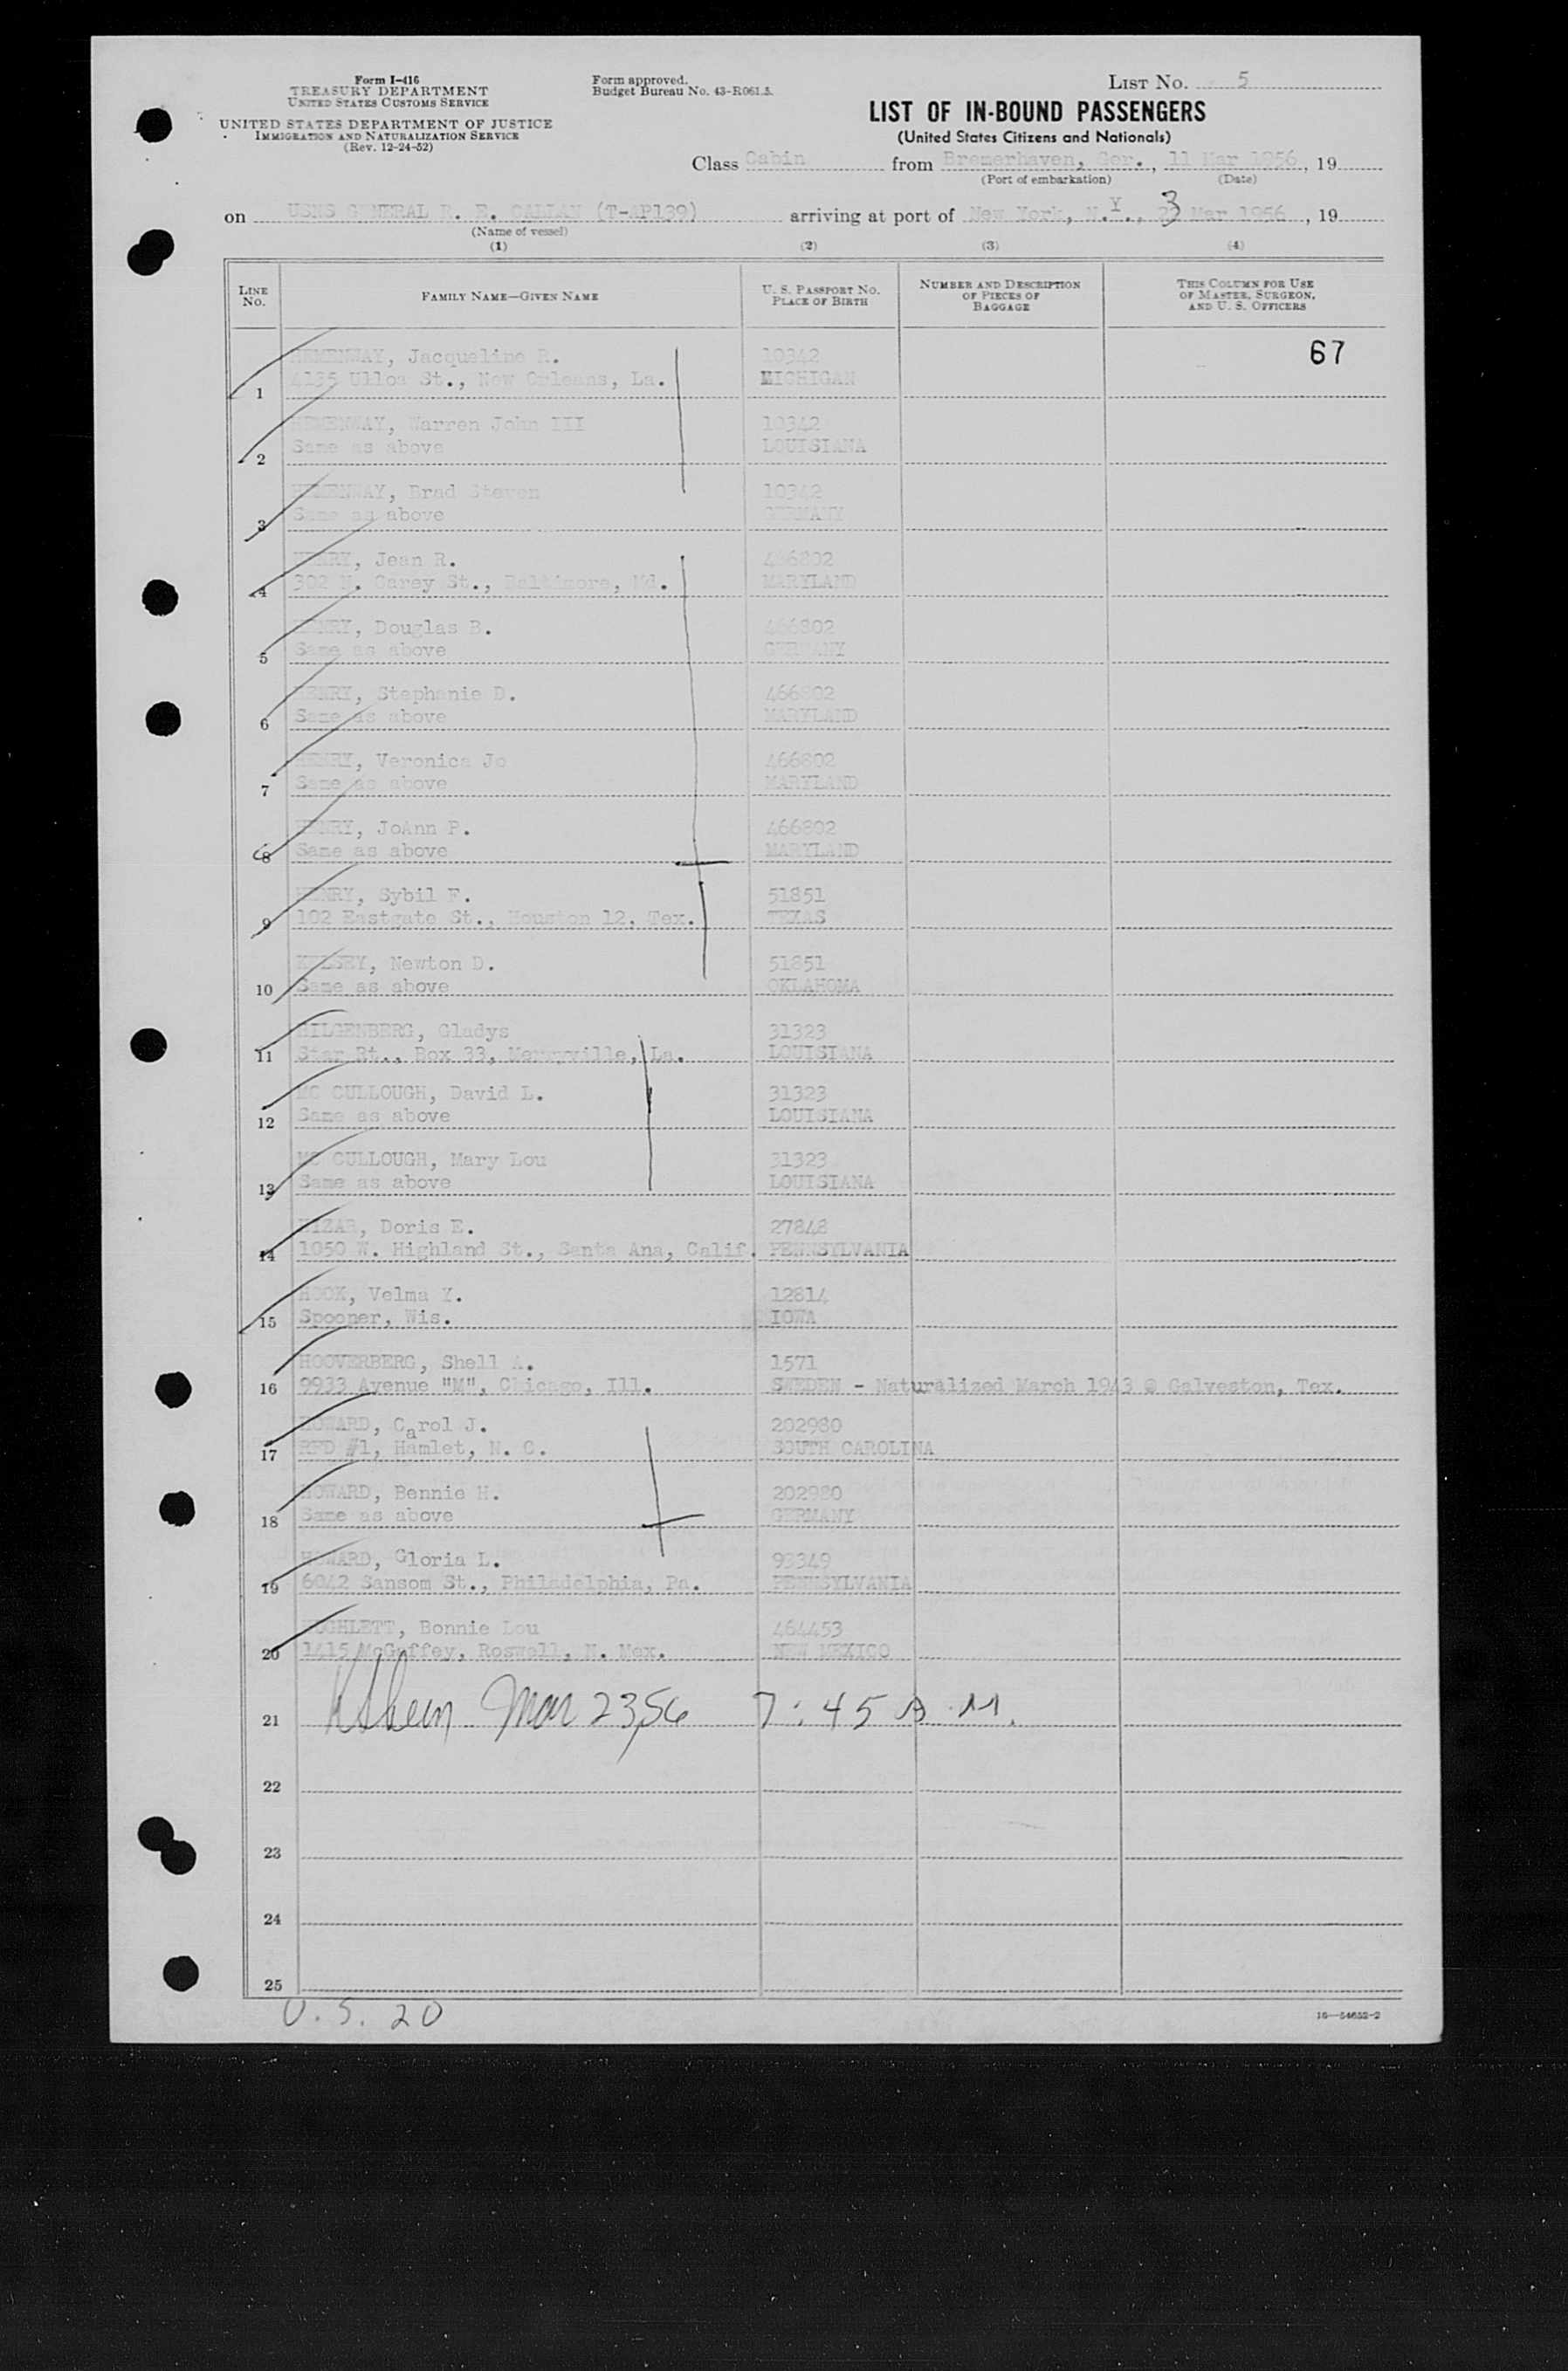 Form I-416
TREASURY DEPARTMENT
UNITED STATES CUSTOMS SERVICE
UNITED STATES DEPARTMENT OF JUSTICE
IMMIGRATION AND NATURALIZATION SERVICE
(Rev. 12-24-52)
Form approved.
Budget Bureau No. 43-R061.5.
LIST NO. 5
LIST OF IN-BOUND PASSENGERS
(United States Citizens and Nationals)
Class Cabin from Bremerhaven, Ger., 11 Mar 1956, 19
(Port of embarkation) (Date)
on USNS GENERAL R. E. CALLAN (T-AP139) arriving at port of New York, N.Y., 23 Mar 1956, 19
(Name of vessel)
(1) (2) (3) (4)
LINE NO. FAMILY NAME—GIVEN NAME U. S. PASSPORT NO. PLACE OF BIRTH NUMBER AND DESCRIPTION OF PIECES OF BAGGAGE THIS COLUMN FOR USE OF MASTER, SURGEON, AND U. S. OFFICERS
67
HEMENWAY, Jacqueline R. 10342
1 4135 Ulloa St., New Orleans, La. MICHIGAN
HEMENWAY, Warren John III 10342
2 Same as above LOUISIANA
HEMENWAY, Brad Steven 10342
3 Same as above GERMANY
HENRY, Jean R. 466802
4 302 N. Carey St., Baltimore, Md. MARYLAND
HENRY, Douglas B. 466802
5 Same as above GERMANY
HENRY, Stephanie D. 466802
6 Same as above MARYLAND
HENRY, Veronica Jo 466802
7 Same as above MARYLAND
HENRY, JoAnn P. 466802
8 Same as above MARYLAND
HENRY, Sybil F. 51851
9 102 Eastgate St., Houston 12, Tex. TEXAS
KELSEY, Newton D. 51851
10 Same as above OKLAHOMA
HILGENBERG, Gladys 31323
11 Star Rt., Box 33, Merryville, La. LOUISIANA
MC CULLOUGH, David L. 31323
12 Same as above LOUISIANA
MC CULLOUGH, Mary Lou 31323
13 Same as above LOUISIANA
HIZAR, Doris E. 27848
14 1050 W. Highland St., Santa Ana, Calif. PENNSYLVANIA
HOOK, Velma Y. 12814
15 Spooner, Wis. IOWA
HOOVERBERG, Shell A. 1571
16 9933 Avenue "M", Chicago, Ill. SWEDEN - Naturalized March 1943 @ Galveston, Tex.
HOWARD, Carol J. 202980
17 RFD #1, Hamlet, N. C. SOUTH CAROLINA
HOWARD, Bennie H. 202980
18 Same as above GERMANY
HOWARD, Gloria L. 93349
19 6042 Sansom St., Philadelphia, Pa. PENNSYLVANIA
HUGHLETT, Bonnie Lou 464453
20 1415 McGaffey, Roswell, N. Mex. NEW MEXICO
21 Mar 23,56 7:45 A.M.
22
23
24
25
U.S. 20
16—54652-2